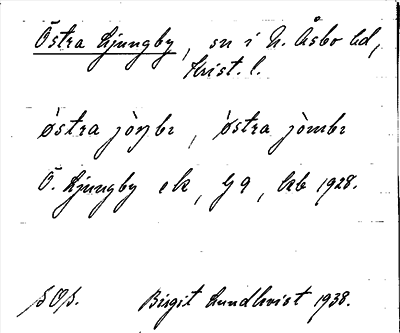 Östra Ljungby, sn i N. Åsbo hd,
Krist. l.
östra jòŋbı, östra jòmbı
Ö. Ljungby ek, G9, lkb 1928.
Birgit Lundkvist 1938.